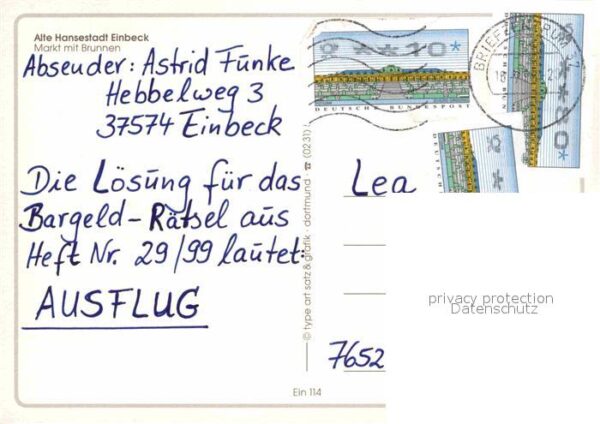 Alte Hansestadt Einbeck
Markt mit Brunnen
Absender: Astrid Funke
Hebbelweg 3
37574 Einbeck
Die Lösung für das
Bargeld-Rätsel aus
Heft Nr. 29/99 lautet:
AUSFLUG
© type art satz & grafik · dortmund · ☎ (0231)
Ein 114
**10*
DEUTSCHE BUNDESPOST
BRIEFZENTRUM
Lea
7652
privacy protection
Datenschutz